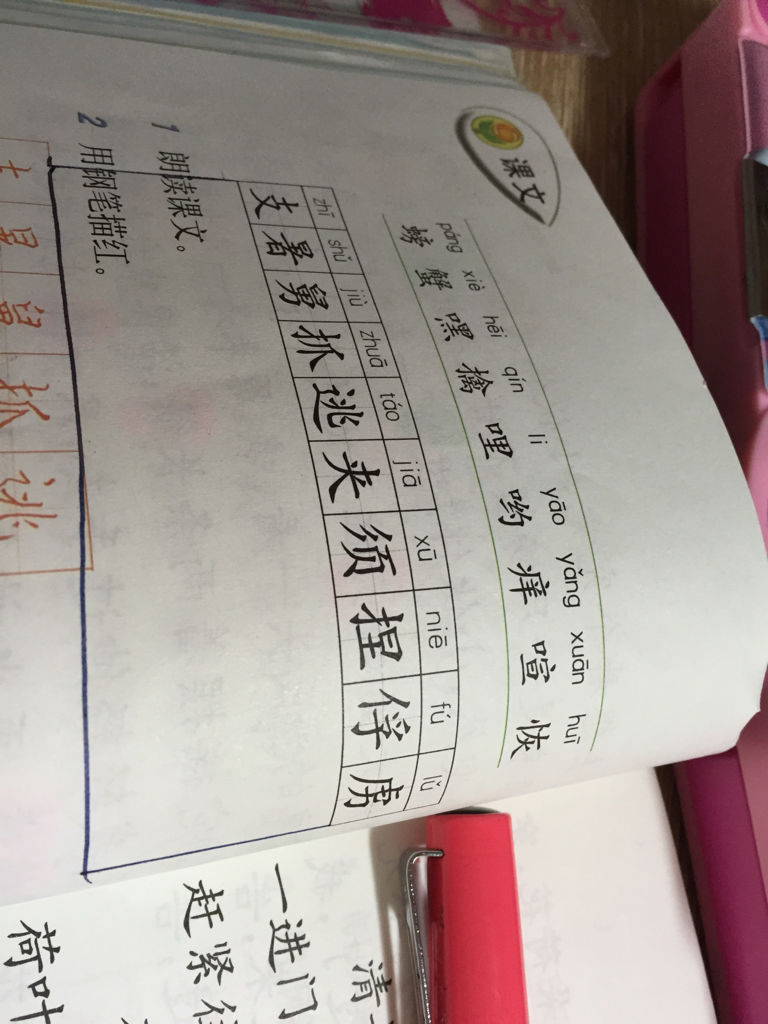 课文
páng xiè hēi qín li yāo yǎng xuān huī
螃 蟹 嘿 擒 哩 哟 痒 喧 恢
zhī shǔ jiù zhuā táo jiā xū niē fú lǔ
支 暑 舅 抓 逃 夹 须 捏 俘 虏
1 朗读课文。
2 用钢笔描红。
舅 抓 逃
清
一进门
赶紧往
荷叶